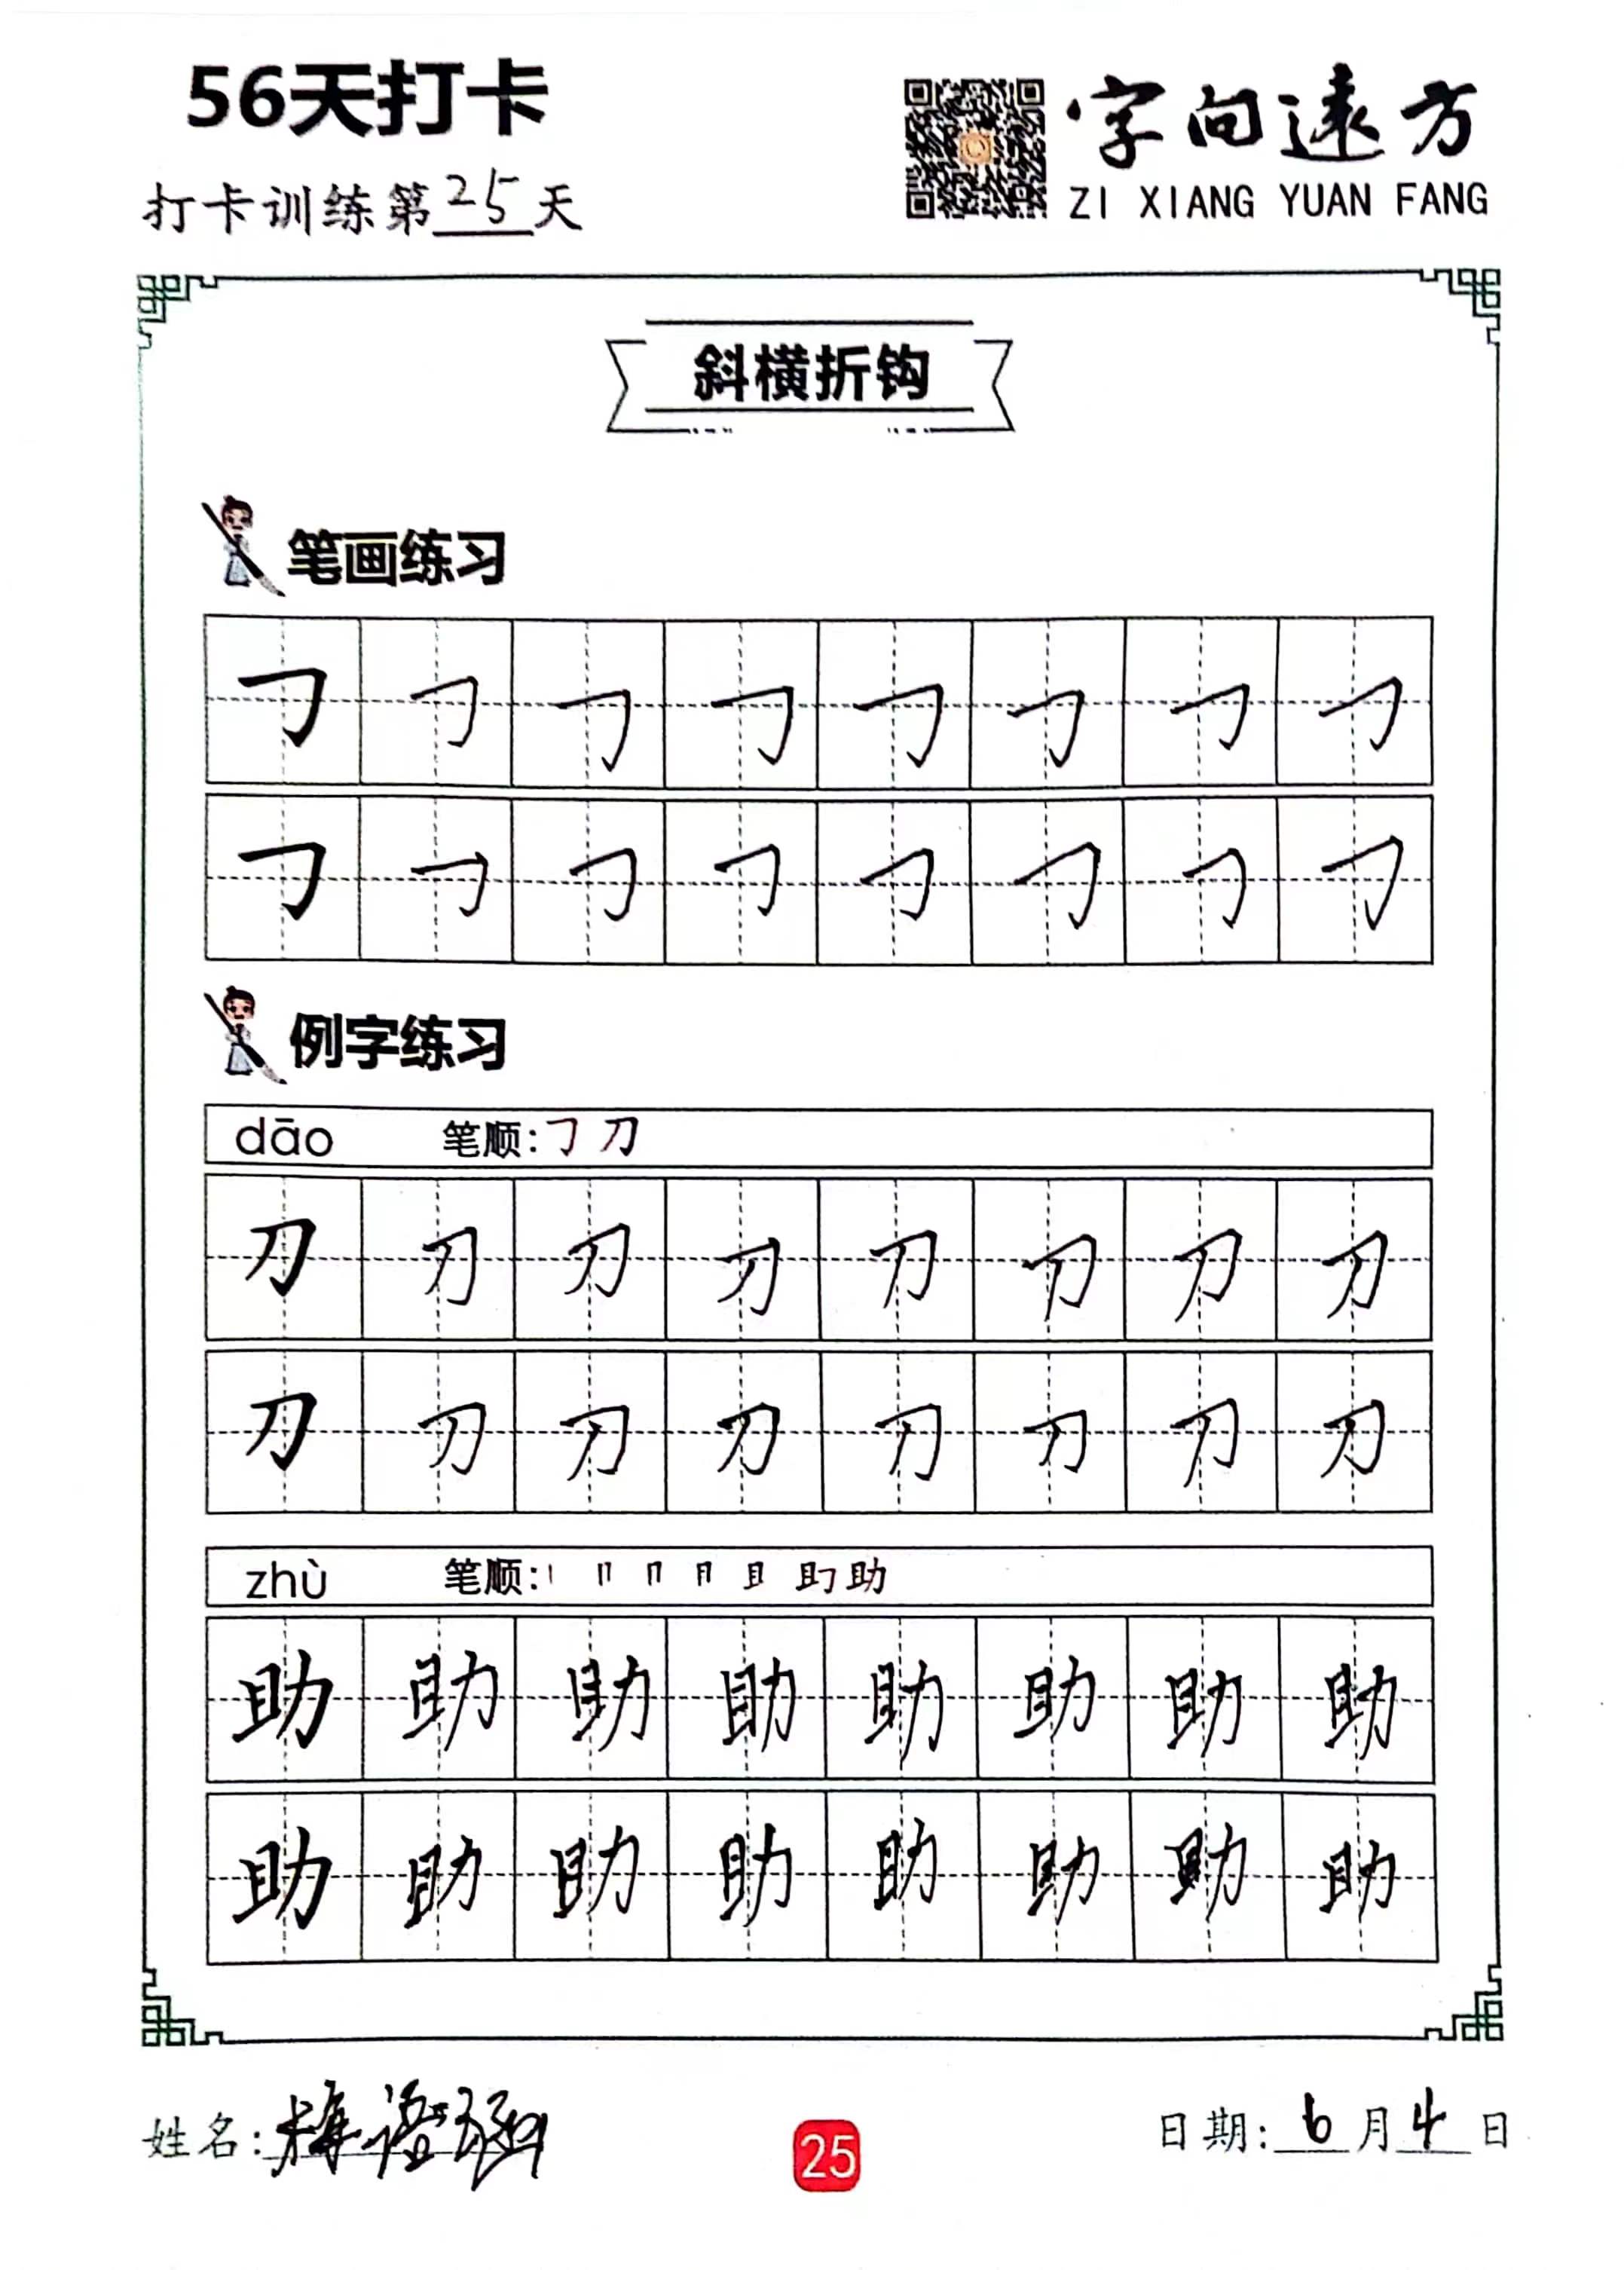 56天打卡
字向遠方
ZI XIANG YUAN FANG
打卡训练第25天
斜横折钩
笔画练习
㇆ ㇆ ㇆ ㇆ ㇆ ㇆ ㇆ ㇆
㇆ ㇆ ㇆ ㇆ ㇆ ㇆ ㇆ ㇆
例字练习
dāo 笔顺:㇆ 刀
刀 刀 刀 刀 刀 刀 刀 刀
刀 刀 刀 刀 刀 刀 刀 刀
zhù 笔顺:
助 助 助 助 助 助 助 助
助 助 助 助 助 助 助 助
姓名:梅
25
日期:6月4日